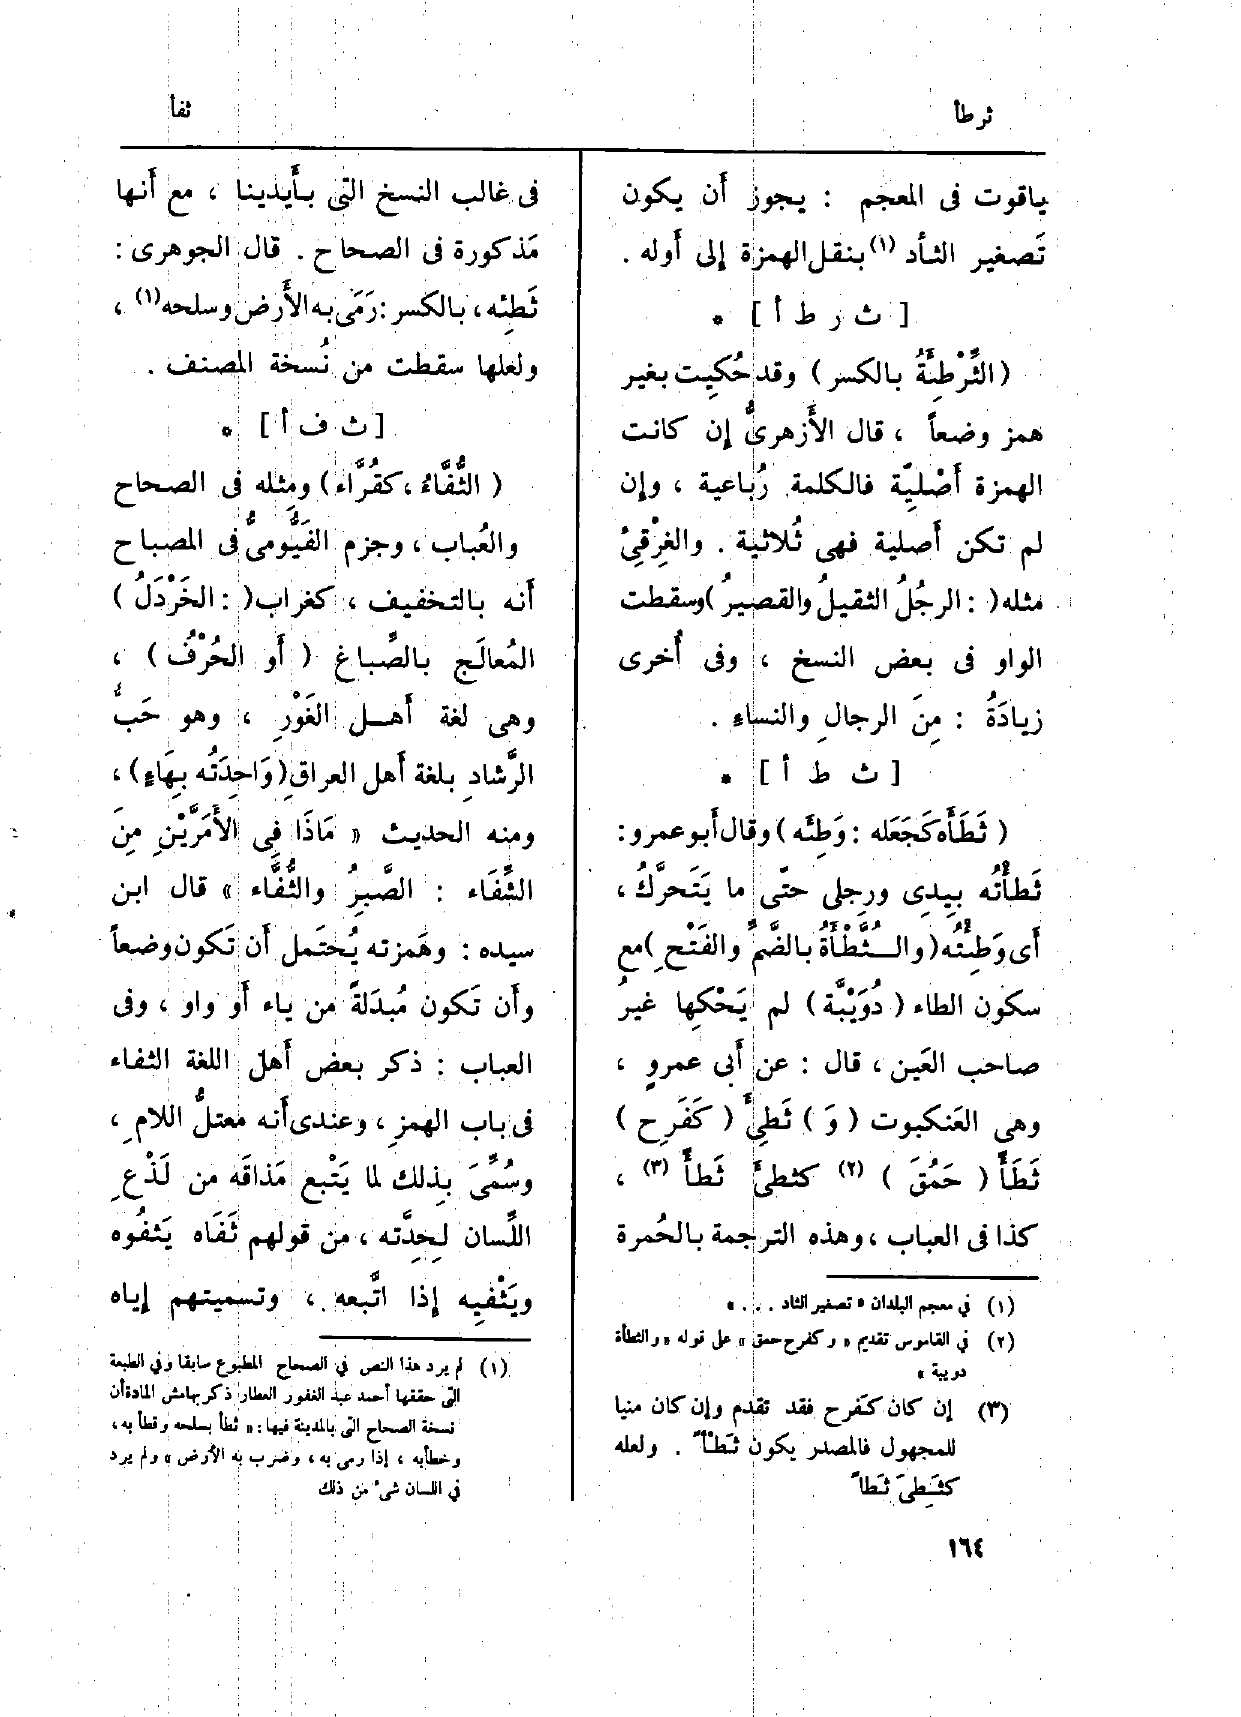 ثرطأ
ثفأ
ياقوت فى المعجم : يجوز أَن يكون
تَصغير الثأد (١) بنقل الهمزة إلى أَوله .
[ ث ر ط أ ] *
(الثِّرْطِئَةُ بالكسر) وقد حُكِيت بغير
همز وضعاً ، قال الأَزهرىُّ إن كانت
الهمزة أَصْلِيّة فالكلمة رُباعية ، وإن
لم تكن أَصلية فهى ثُلاثية . والغِرْقِئُ
مثله ( : الرجُلُ الثقيلُ والقصيرُ ) وسقطت
الواو فى بعض النسخ ، وفى أُخرى
زيادَةُ : مِنَ الرجالِ والنساءِ .
[ ث ط أ ] *
( ثَطَأَه كَجَعَله : وَطِئَه ) وقال أَبو عمرو :
ثَطأْتُه بِيدِى ورِجلى حتّى ما يَتَحرَّكُ ،
أَى وَطِئْتُه ( والــثُّطْأَةُ بالضَّمِّ والفَتْح ِ ) مع
سكون الطاء ( دُوَيْبَّة ) لم يَحْكِها غيرُ
صاحب العَين ، قال : عن أَبى عمروٍ ،
وهى العَنكبوت ( وَ ) ثَطِئَ ( كَفَرِح )
ثَطَأً ( حَمُقَ ) (٢) كثطئَ ثَطأً (٣) ،
كذا فى العباب ، وهذه الترجمة بالحُمرة
(١) في معجم البلدان « تصغير الثاد . . . »
(٢) في القاموس تقديم « وكفرح حمق » على قوله « والثطأة
دويبة »
(٣) إن كان كَفرح فقد تقدم وإن كان مبنيا
للمجهول فالمصدر يكون ثَطْأً . ولعله
كثَطِىَ ثَطاً
فى غالب النسخ التى بأَيدينا ، مع أَنها
مَذكورة فى الصحاح . قال الجوهرى :
ثَطِئه ، بالكسر : رَمَى به الأَرض وسلحه (١) ،
ولعلها سقطت من نُسخة المصنف .
[ ث ف أ ] *
( الثُّفَّاءُ ، كقُرَّاء ) ومِثله فى الصحاح
والعُباب ، وجزم الفَيُّومىُّ فى المصباح
أَنه بالتخفيف ، كغراب ( : الخَرْدَلُ )
المُعالَج بالصِّباغ ( أَو الحُرْفُ ) ،
وهى لغة أَهــل الغَوْرِ ، وهو حَبُّ
الرَّشادِ بلغة أَهل العراقِ ( وَاحِدَتُه بِهَاءٍ ) ،
ومنه الحديث « مَاذَا فِى الأَمَرَّيْنِ مِنَ
الشِّفَاء : الصَّبِرُ والثُّفَّاء » قال ابن
سيده : وهَمزته يُحتَمل أَن تَكون وضعاً
وأَن تَكون مُبدَلةً من ياء أَو واو ، وفى
العباب : ذكر بعض أَهل اللغة الثفاء
فى باب الهمزِ ، وعندى أَنه معتلُّ اللامِ ،
وسُمِّىَ بذلك لما يَتْبع مَذاقَه من لَذْعِ
اللِّسان لِحِدَّته ، من قولهم ثَفَاه يَثفُوه
ويَثْفِيه إذا اتَّبعه ، وتسميتهم إياه
(١) لم يرد هذا النص في الصحاح المطبوع سابقا وفي الطبعة
التى حققها أحمد عبد الغفور العطار ذكر بهامش المادة أن
نسخة الصحاح التى بالمدينة فيها : « ثطأ بسلحه وقطأ به ،
وخطأ به ، إذا رمى به ، وضرب به الأرض » ولم يرد
في اللسان شىء من ذلك
١٦٤